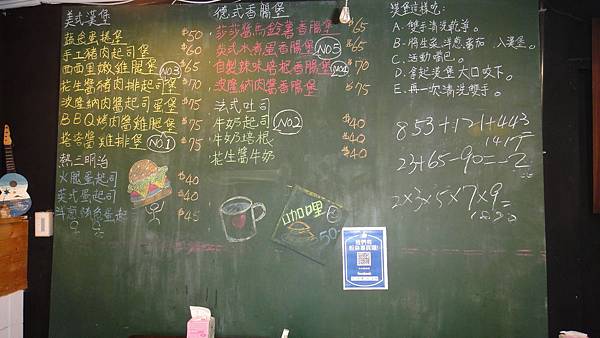 美式漢堡
藍色蛋捲堡 $50
手工豬肉起司堡 $60
西西里嫩雞腿堡 NO3 $65
花生醬豬肉排起司堡 $70
波隆納肉醬起司蛋堡 $75
BBQ烤肉醬雞腿堡 $75
塔塔醬雞排堡 NO1 $75
熱三明治
火腿蛋起司 $40
英式蛋起司 $40
$45
德式香腸堡
莎莎醬馬鈴薯香腸堡 $65
美式水煮蛋香腸堡 NO5 $65
自製辣味培根香腸堡 NO4 $70
波隆納肉醬香腸堡 $75
法式吐司
牛奶起司 NO2 $40
牛奶培根 $40
花生醬牛奶 $40
咖哩
50
漢堡這樣吃:
A. 雙手清洗乾淨。
B. 將生菜洋蔥番茄 入漢堡。
C. 活動嘴巴。
D. 拿起漢堡大口咬下。
E. 再一次清洗雙手。
853+121+443
1417
23+65-90=-2
2×3×5×7×9=
1890